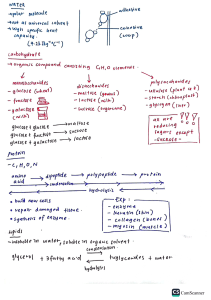 WATER
• polar molecule
• act as universal solvent
• high specific heat
capacity
adhesive
cohesive
(drop)
Carbohydrate
• organic compound consisting C,H,O elements.
monosaccharides
• glucose
• fructose
• galactose
(milk)
disaccharides
• maltose
• lactose (milk)
• sucrose
polysaccharides
• cellulose
• starch
• glycogen
glucose + glucose → maltose
glucose + fructose → sucrose
glucose + galactose → lactose
all are
reducing
sugars except
sucrose
Protein
• C, H, O, N.
amino
acid
dipeptide → polypeptide → protein
condensation
hydrolysis
• build new cells
• repair damaged tissue.
• synthesis of enzyme
Exp:
- enzyme
- keratin (skin)
- collagen (bone)
- myosin (muscle)
Lipids
• insoluble in water, soluble in organic solvent.
condensation
glycerol + 3 fatty acid
triglycerides + water
hydrolysis
CS CamScanner